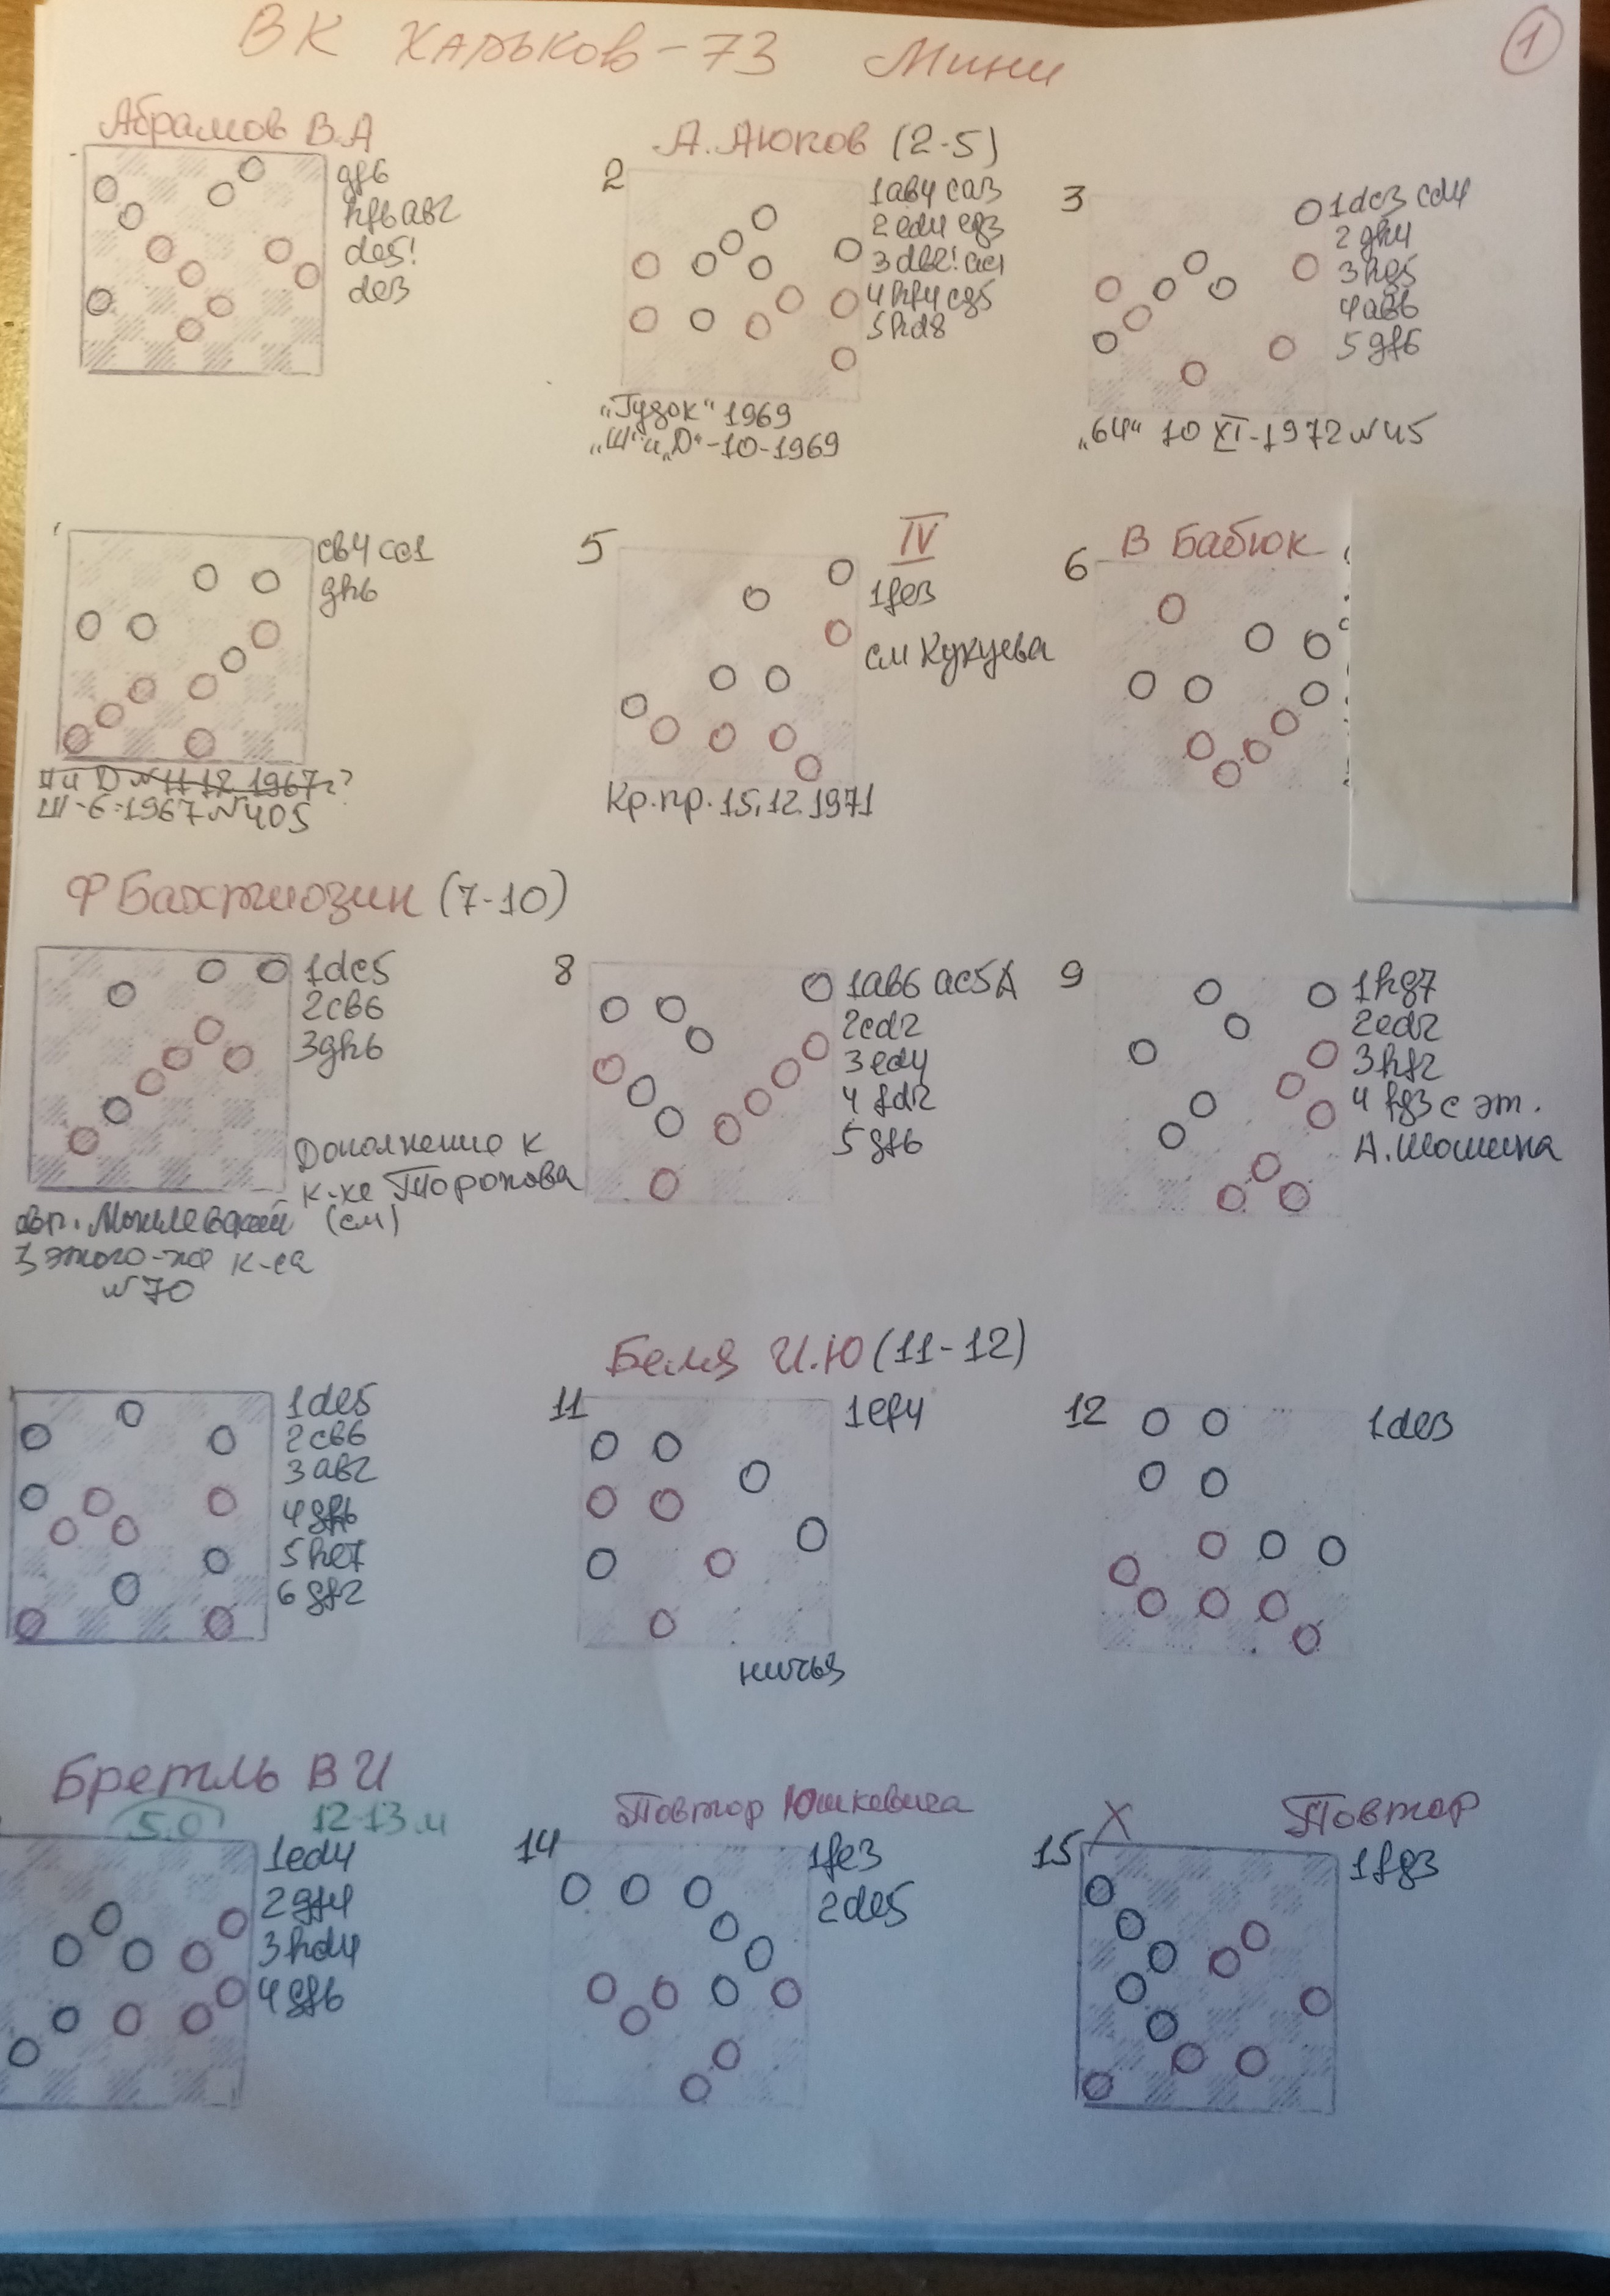 ВК Харьков-73 Мини
1
Абрамов В.А
gf6
hf6 ab2
de5!
de3
А. Аюпов (2-5)
2
1ab4 ca3
2ed4 eg3
3db2! ac1
4hf4 cg5
5hd8
"Гудок" 1969
"Ш" и "Д"-10-1969
3
1dc3 cd4
2gh4
3hg5
4ab6
5gf6
"64" 10 XI-1972 №45
cb4 cc1
gh6
Ш и Д №11 12 1967г?
Ш-6-1967 №405
5
IV
1fe3
см Кукуева
Кр.пр. 15.12.1971
В Бабюк
6
Ф Бахтиозин (7-10)
1dc5
2cb6
3gh6
Дополнение к
к-хе Торопова
(см)
№70
8
1ab6 ac5A
2cd2
3ed4
4fd2
5gf6
9
1hg7
2ed2
3hf2
4hg3 с эт.
А. Шошина
1de5
2cb6
3ab2
4gf6
5he7
6gf2
Беля И.Ю (11-12)
11
1ef4
ничья
12
1de3
Бретль В И
5.0
12-13.И
1ed4
2gf4
3hd4
4gf6
Повтор Юшкевича
14
1fe3
2de5
Х
Повтор
15
1fg3